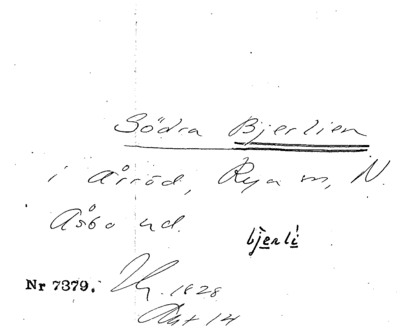 Södra Bjerlien
i Årröd, Rya m, N.
Åsbo hd.
bjerli
Nr 7379. 1828
Akt 14